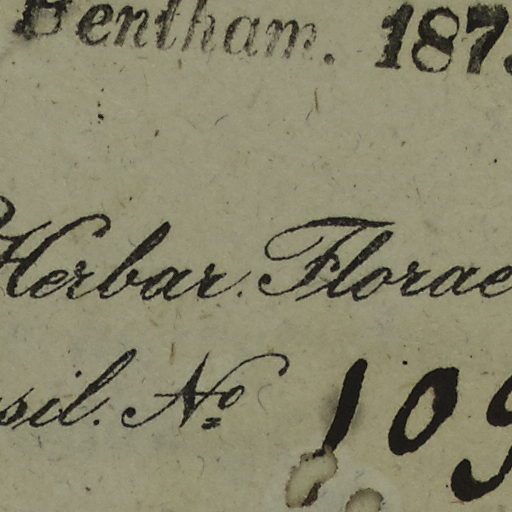 Bentham. 187
Herbar. Florae
sil. Nº 109